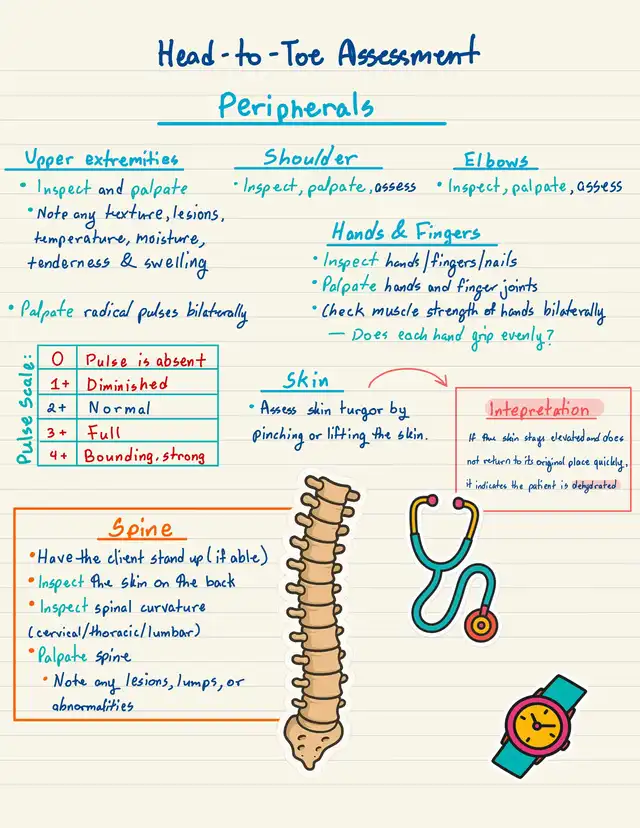 Head-to-Toe Assessment
Peripherals
Upper extremities
• Inspect and palpate
• Note any texture, lesions,
temperature, moisture,
tenderness & swelling
• Palpate radical pulses bilaterally
Pulse Scale:
0 Pulse is absent
1+ Diminished
2+ Normal
3+ Full
4+ Bounding, strong
Shoulder
• Inspect, palpate, assess
Elbows
• Inspect, palpate, assess
Hands & Fingers
• Inspect hands/fingers/nails
• Palpate hands and finger joints
• Check muscle strength of hands bilaterally
— Does each hand grip evenly?
Skin
• Assess skin turgor by
pinching or lifting the skin.
Intepretation
If the skin stays elevated and does
not return to its original place quickly,
it indicates the patient is dehydrated
Spine
• Have the client stand up (if able)
• Inspect the skin on the back
• Inspect spinal curvature
(cervical/thoracic/lumbar)
• Palpate spine
• Note any lesions, lumps, or
abnormalities